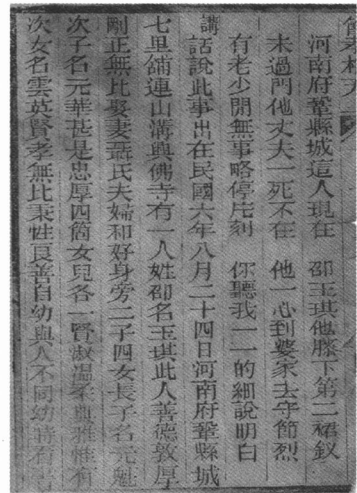 河南府鞏縣城這人現在　邵玉琪他膝下第二裙釵
未過門他丈夫一死不在　他一心到婆家去守節烈
有老少閒無事略停片刻　你聽我一一的細說明白
講話說此事出在民國六年八月二十四日河南府鞏縣城
七里舖連山溝興佛寺有一人姓邵名玉琪此人善德敦厚
剛正無比娶妻聶氏夫婦和好身旁二子四女長子名元魁
次子名元華甚是忠厚四箇女兒各一賢淑温柔典雅惟有
次女名雲英賢孝無比秉性良善自幼與人不同幼時有